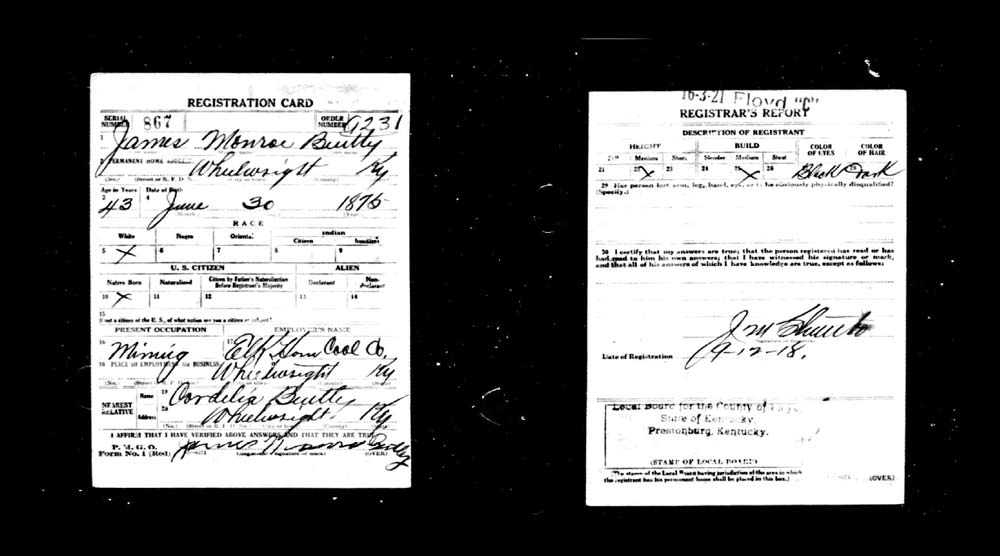 REGISTRATION CARD
SERIAL NUMBER 867 ORDER NUMBER A231
1 James Monroe Buitty
2 PERMANENT HOME ADDRESS: Wheelwright Ky
(No.) (Street or R. F. D. No.) (City or town) (County) (State)
Age in Years Date of Birth
3 43 4 June 30 1875
(Month.) (Day.) (Year.)
RACE
White Negro Oriental Indian
Citizen
5 X 6 7 8 9
U. S. CITIZEN ALIEN
Native Born Naturalized Citizen by Father's Naturalization Before Registrant's Majority Declarant Non-declarant
10 X 11 12 13 14
15
If not a citizen of the U. S., of what nation are you a citizen or subject?
PRESENT OCCUPATION EMPLOYER'S NAME
16 Mining 17 Elk Horn Coal Co.
18 PLACE OF EMPLOYMENT OR BUSINESS: Wheelwright Ky
(No.) (Street or R. F. D. No.) (County) (State)
NEAREST RELATIVE Name 19 Cordelia Buitty
Address 20 Wheelwright Ky
(No.) (State)
I AFFIRM THAT I HAVE VERIFIED ABOVE ANSWERS AND THAT THEY ARE TRUE
P. M. G. O.
Form No. 1 (Red) James Monroe
(Registrant's signature or mark) (OVER)
16-3-21 Floyd "C"
REGISTRAR'S REPORT
DESCRIPTION OF REGISTRANT
HEIGHT BUILD COLOR OF EYES COLOR OF HAIR
Tall Medium Short Slender Medium Stout
21 22 X 23 24 25 X 26 27 Black 28 Dark
29 Has person lost arm, leg, hand, eye, or is he obviously physically disqualified?
(Specify.)
30 I certify that my answers are true; that the person registered has read or has
had read to him his own answers; that I have witnessed his signature or mark,
and that all of his answers of which I have knowledge are true, except as follows:
J M
(Signature of Registrar)
Date of Registration 9-12-18.
Local Board for the County of Floyd
State of Kentucky,
Prestonburg, Kentucky.
(STAMP OF LOCAL BOARD)
(The stamp of the Local Board having jurisdiction of the area in which
the registrant has his permanent home shall be placed in this box.)
(OVER)